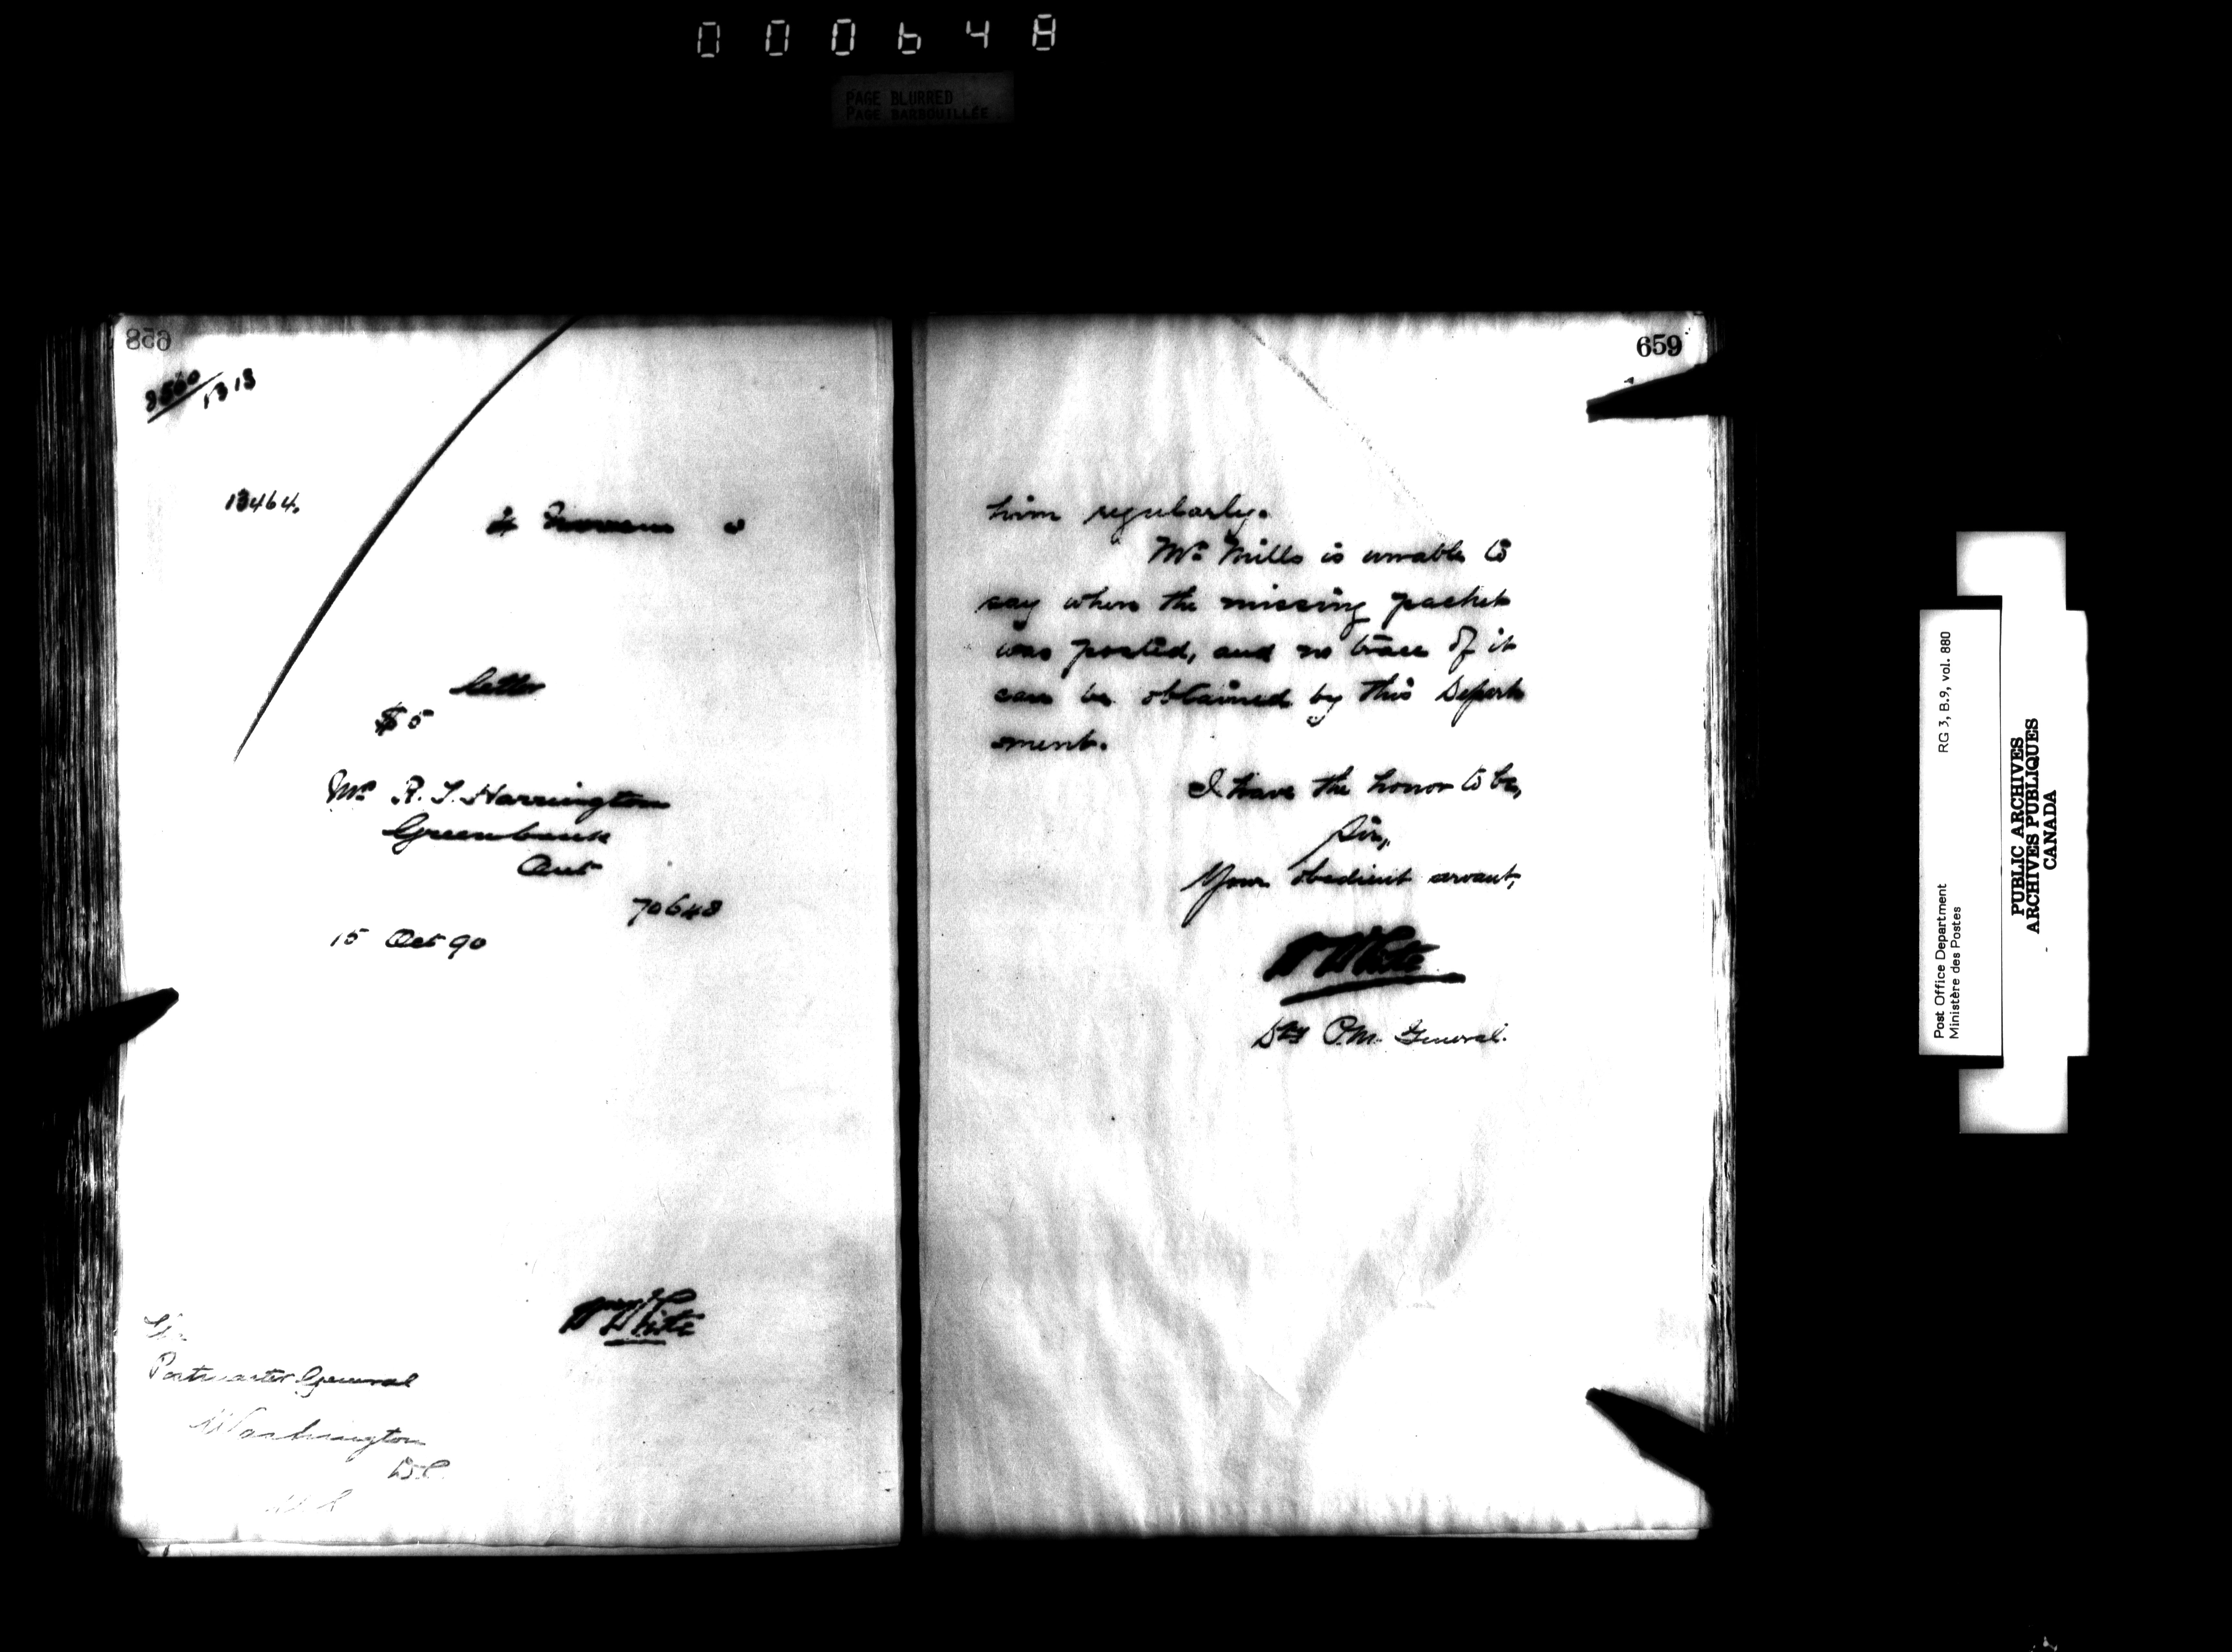 000648
PAGE BLURRED
PAGE BARBOUILLÉE
658
13464.
letter
$5
Mr R. T. Harrington
Greenbank
Ont
70648
15 Oct 90
W White
The
Postmaster General
Washington
D.C.
659
him regularly.
Mr. Mills is unable to
say when the missing packet
was posted, and no trace of it
can be obtained by this Depart
ment.
I have the honor to be,
Sir,
Your obedient servant,
W White
Dty P.M. General.
Post Office Department
Ministère des Postes
RG 3, B.9, vol. 880
PUBLIC ARCHIVES
ARCHIVES PUBLIQUES
CANADA